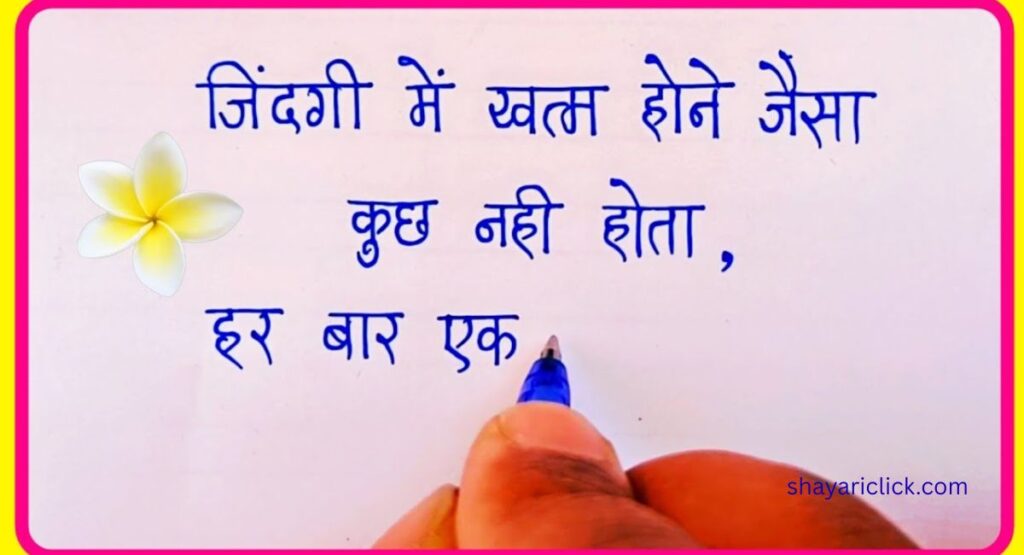 जिंदगी में खत्म होने जैसा
कुछ नही होता,
हर बार एक
shayariclick.com